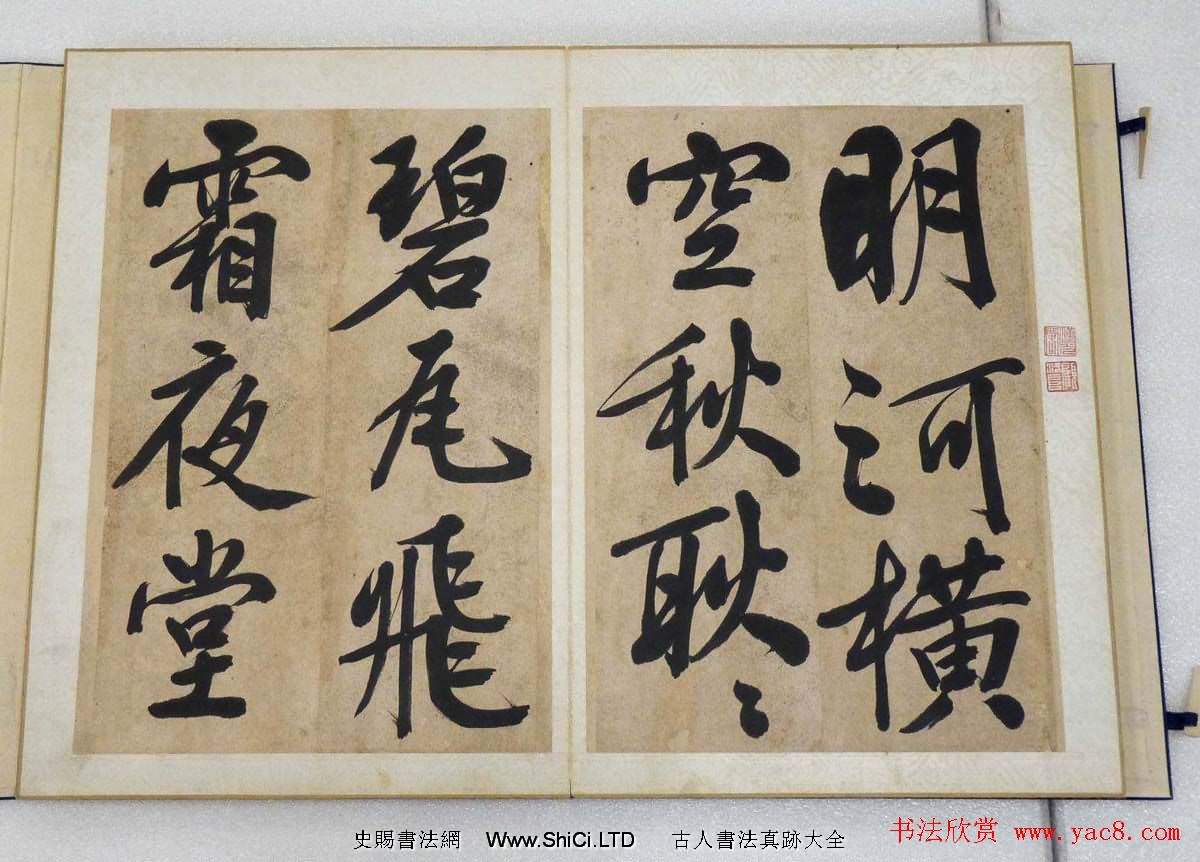 明河橫
空秋耿〻
碧尾飛
霜夜堂
史賜書法網 Www.ShiCi.LTD 古人書法真跡大全
书法欣赏 www.yac8.com